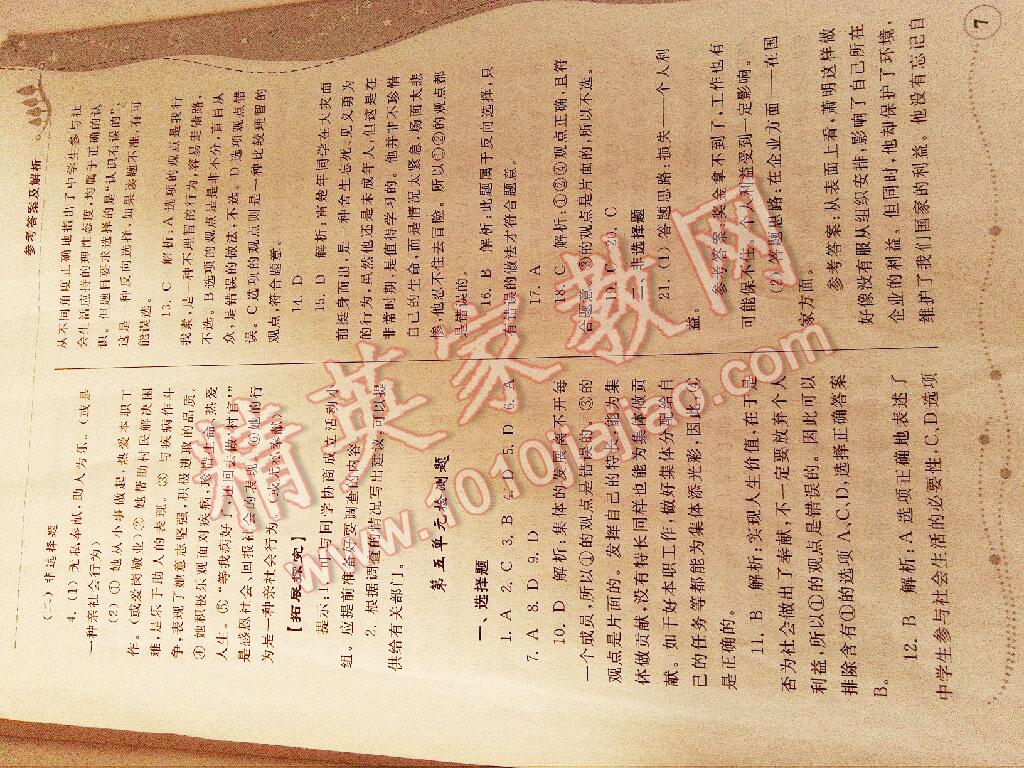 参考答案及解析
(二) 非选择题
4. (1) 无私奉献,助人为乐。(或是
一种亲社会行为)
(2) ① 她从小事做起,热爱本职工
作。(或爱岗敬业)② 她帮助村民解决困
难,是乐于助人的表现。③ 与疾病作斗
争,表现了她意志坚强,积极进取的品质。
④ 她积极乐观面对疾病,珍惜生命,热爱
人生。⑤“等我病好了,还回去做‘村官’”
是感恩社会、回报社会的表现。⑥她的行
为是一种亲社会行为。(或无私奉献)
【拓展探究】
提示:1. 可与同学协商成立活动小
组。应提前准备好要调查的内容。
2. 根据调查的情况写出建议,可以提
供给有关部门。
第五单元检测题
一、选择题
1. A 2. C 3. B 4. D 5. D 6. A
7. A 8. D 9. D
10. D 解析:集体的发展离不开每
一个成员,所以①的观点是错误的。③的
观点是片面的。发挥自己的特长,能为集
体做贡献,没有特长同样也能为集体做贡
献。如干好本职工作,做好集体分配给自
己的任务等都能为集体添光彩,因此,④
是正确的。
11. B 解析:实现人生价值,在于是
否为社会做出了奉献,不一定要放弃个人
利益,所以①的观点是错误的。因此可以
排除含有①的选项 A、C、D,选择正确答案
B。
12. B 解析:A 选项正确地表述了
中学生参与社会生活的必要性,C、D 选项
从不同角度正确地指出了中学生参与社
会生活应持的理性态度,均属于正确的认
识。但题目要求选择的是“认识有误的”,
这是一种反向选择,如果读题不准,有可
能误选。
13. C 解析:A 选项的观点是我行
我素,是一种不理智的行为,容易走错路,
不选。B 选项的观点是是非不分,盲目从
众,是错误的做法,不选。D 选项观点错
误。C 选项的观点则是一种比较理智的
观点,符合题意。
14. D
15. D 解析:雷楚年同学在大灾面
前挺身而出,是一种舍生忘死、见义勇为
的行为,虽然他还是未成年人,但这是在
非常时期,是值得学习的。他并非不珍惜
自己的生命,而是情况太紧急,场面太悲
惨,他忍不住去冒险。所以①②的观点都
是错误的。
16. B 解析:此题属于反向选择,只
有错误的做法才符合题意。
17. A
18. C 解析:①②④观点正确,且符
合题意。③的观点是片面的,所以不选。
19. C 20. C
二、非选择题
21. (1) 答题思路:损失——个人利
益。
参考答案:奖金拿不到了,工作也有
可能保不住。个人利益受到一定影响。
(2) 答题思路:在企业方面——在国
家方面。
参考答案:从表面上看,萧明这样做
好像没有服从组织安排,影响了自己所在
企业的利益。但同时,他却保护了环境,
维护了我们国家的利益。他没有忘记自
7
精英家教网
www.1010jiajiao.com